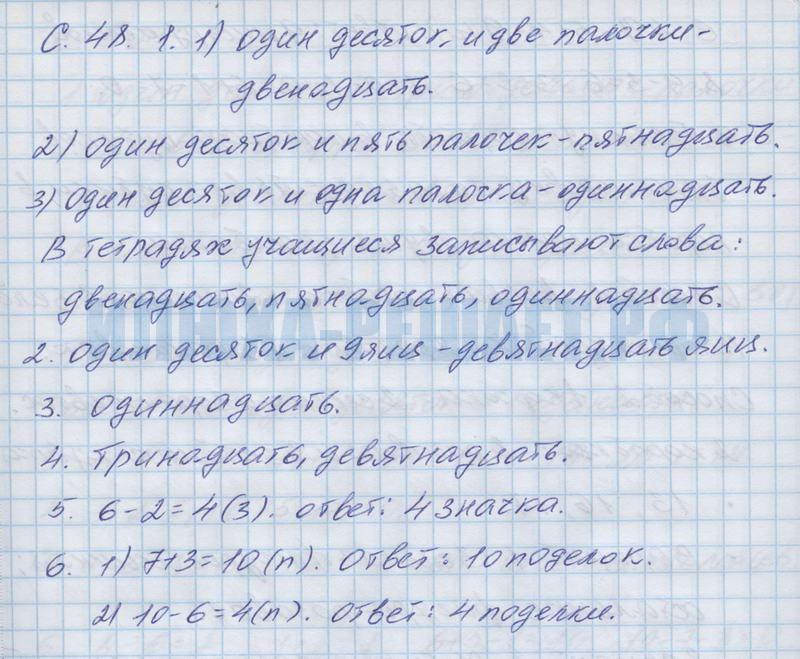 С. 48. 1. 1) один десяток и две палочки-
двенадцать.
2) один десяток и пять палочек-пятнадцать.
3) один десяток и одна палочка-одиннадцать.
В тетрадях учащиеся записывают слова:
двенадцать, пятнадцать, одиннадцать.
2. один десяток и 9 яиц - девятнадцать яиц.
3. одиннадцать.
4. Тринадцать, девятнадцать.
5. 6-2=4(З). ответ: 4 значка.
6. 1) 7+3=10(п). Ответ: 10 поделок.
2) 10-6=4(п). Ответ: 4 поделки.